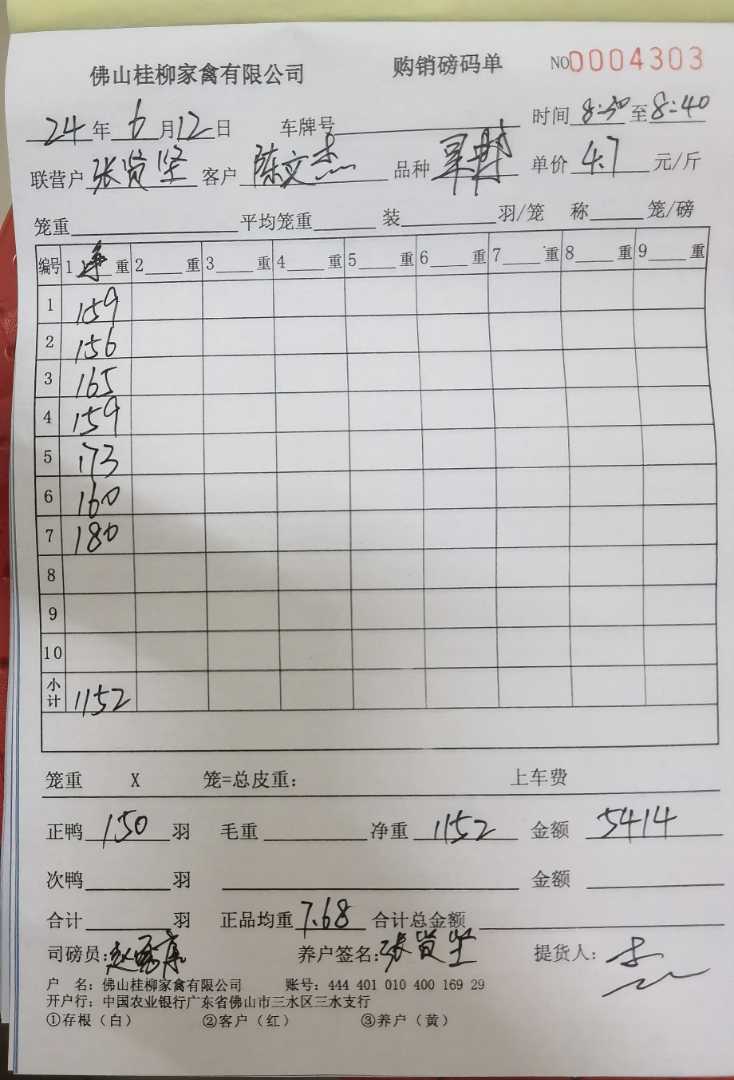 佛山桂柳家禽有限公司 购销磅码单 NO0004303
24年6月12日 车牌号 时间8:30至8:40
联营户张贤坚 客户陈文杰 品种 单价4.7元/斤
笼重 平均笼重 装 羽/笼 称 笼/磅
编号 1净重 2 重 3 重 4 重 5 重 6 重 7 重 8 重 9 重
1 159
2 156
3 165
4 159
5 173
6 160
7 180
8
9
10
小计 1152
笼重 X 笼=总皮重: 上车费
正鸭150羽 毛重 净重1152 金额5414
次鸭 羽 金额
合计 羽 正品均重7.68 合计总金额
司磅员: 养户签名:张贤坚 提货人:
户 名:佛山桂柳家禽有限公司 账号:444 401 010 400 169 29
开户行:中国农业银行广东省佛山市三水区三水支行
①存根(白) ②客户(红) ③养户(黄)